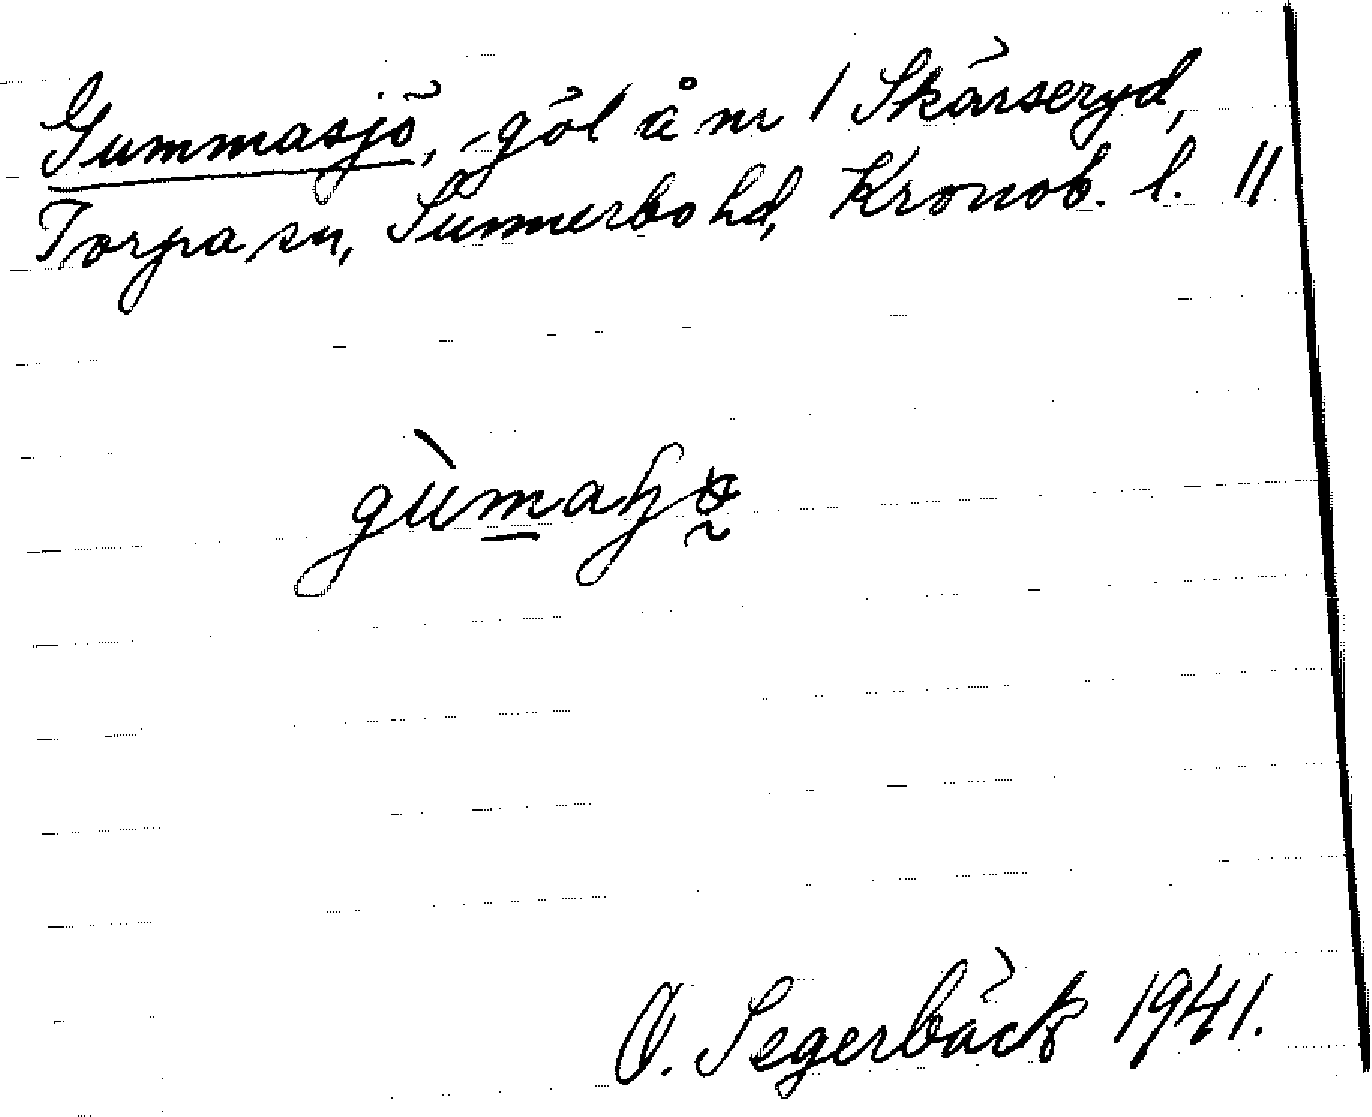 Gummasjö, göl å nr 1 Skärseryd,
Torpa sn, Sunnerbo hd, Kronob. l. 11
O. Segerbäck 1941.